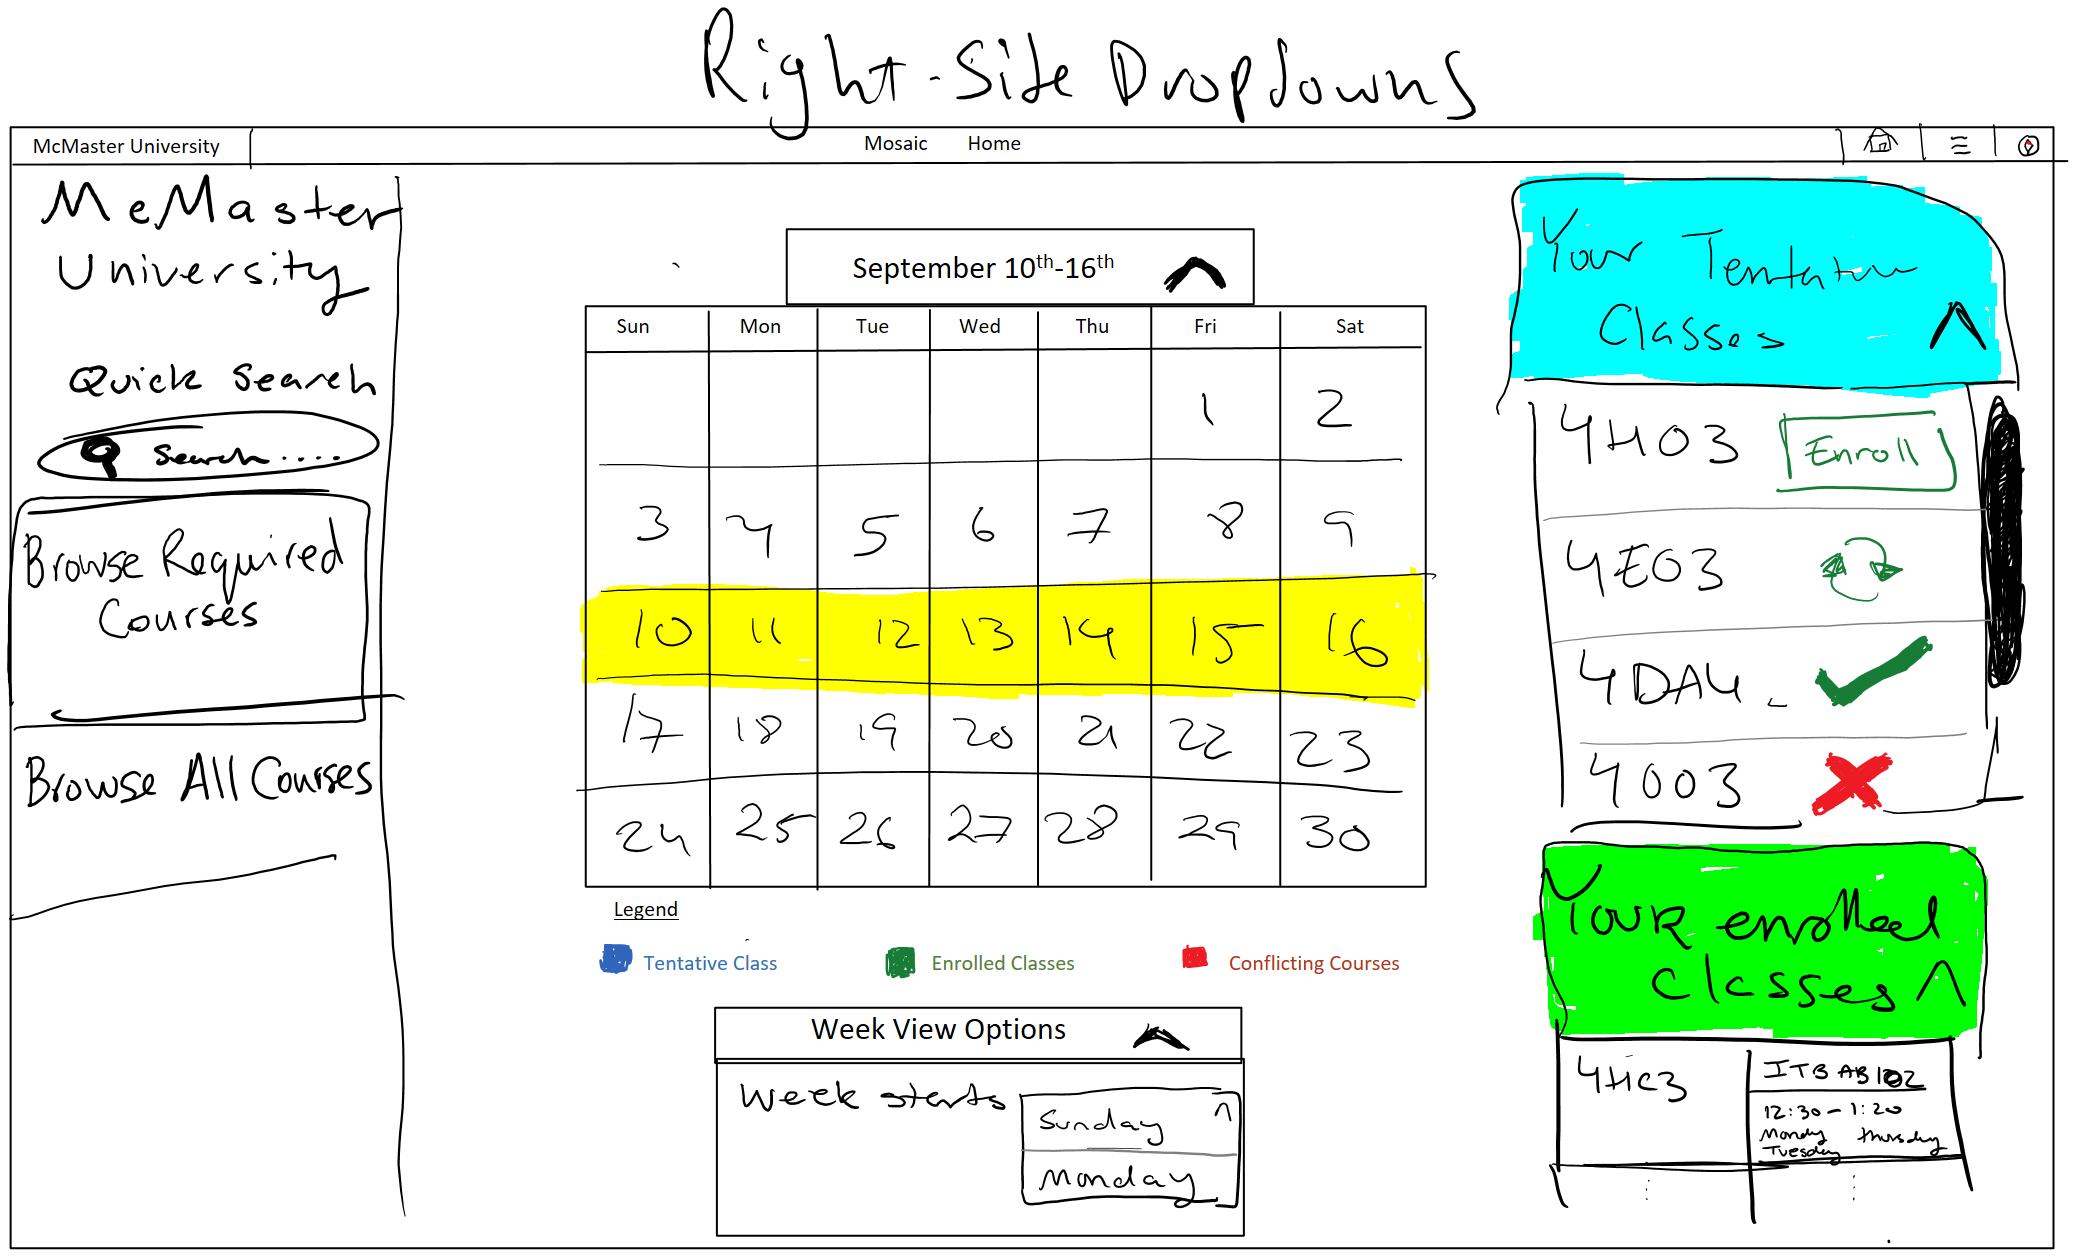 Right-Side Dropdowns
McMaster University
Mosaic Home
McMaster
University
Quick Search
Search....
Browse Required
Courses
Browse All Courses
September 10th-16th
Sun Mon Tue Wed Thu Fri Sat
1 2
3 4 5 6 7 8 9
10 11 12 13 14 15 16
17 18 19 20 21 22 23
24 25 26 27 28 29 30
Legend
Tentative Class Enrolled Classes Conflicting Courses
Week View Options
Week starts
Sunday
Monday
Your Tentative
Classes
4HO3 Enroll
4EO3
4DA4
4OO3
Your enrolled
Classes
4HC3
ITB AB102
12:30-1:20
Monday Thursday
Tuesday